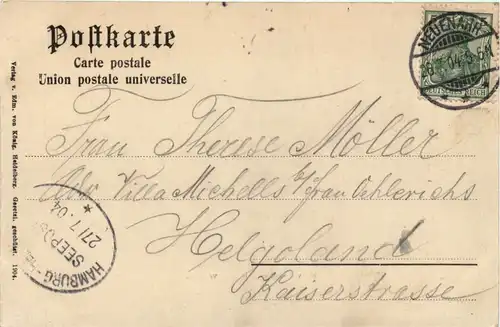 Postkarte
Carte postale
Union postale universelle
NEUENAHR
04. 5-6N
DEUTSCHES REICH
Frau Therese Möller
Adr. Villa Michells b/Frau Ohlerichs
Helgoland
Kaiserstrasse
HAMBURG
SEEPOST
27/7.04
Verlag v. Edm. von König, Heidelberg. Gesetzl. geschützt. 1904.